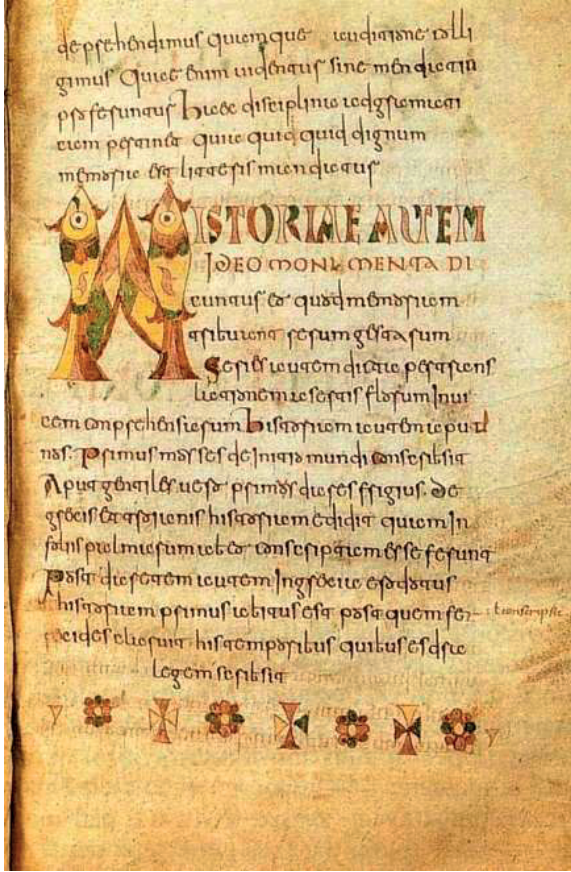 deprehendimus quam que auditione colli
gimus Quae enim videntur sine mendatio
proferuntur Haec disciplina adgramati
cam pertinet quia quid quid dignum
memoria est litteris mandatur
HISTORIAE AUTEM
IDEO MONUMENTA DI
cuntur eo quod memoriam
tribuant rerum gestarum
Series autem dicta per trans
lationem a sertis florum Invi
cem conprehensarum historiam autem aput
nos. Primus moses de Initio mundi conscribsit
Aput gentiles vero primos dares frigius de
grecis et troianis historiam edidit quam In
foliis palmarum ab eo conscriptam esse ferunt
Post daretem autem Ingrecia erodotus
historiam primus abitus est post quem fer
recides claruit his temporibus quibus esdras
legem scribsit